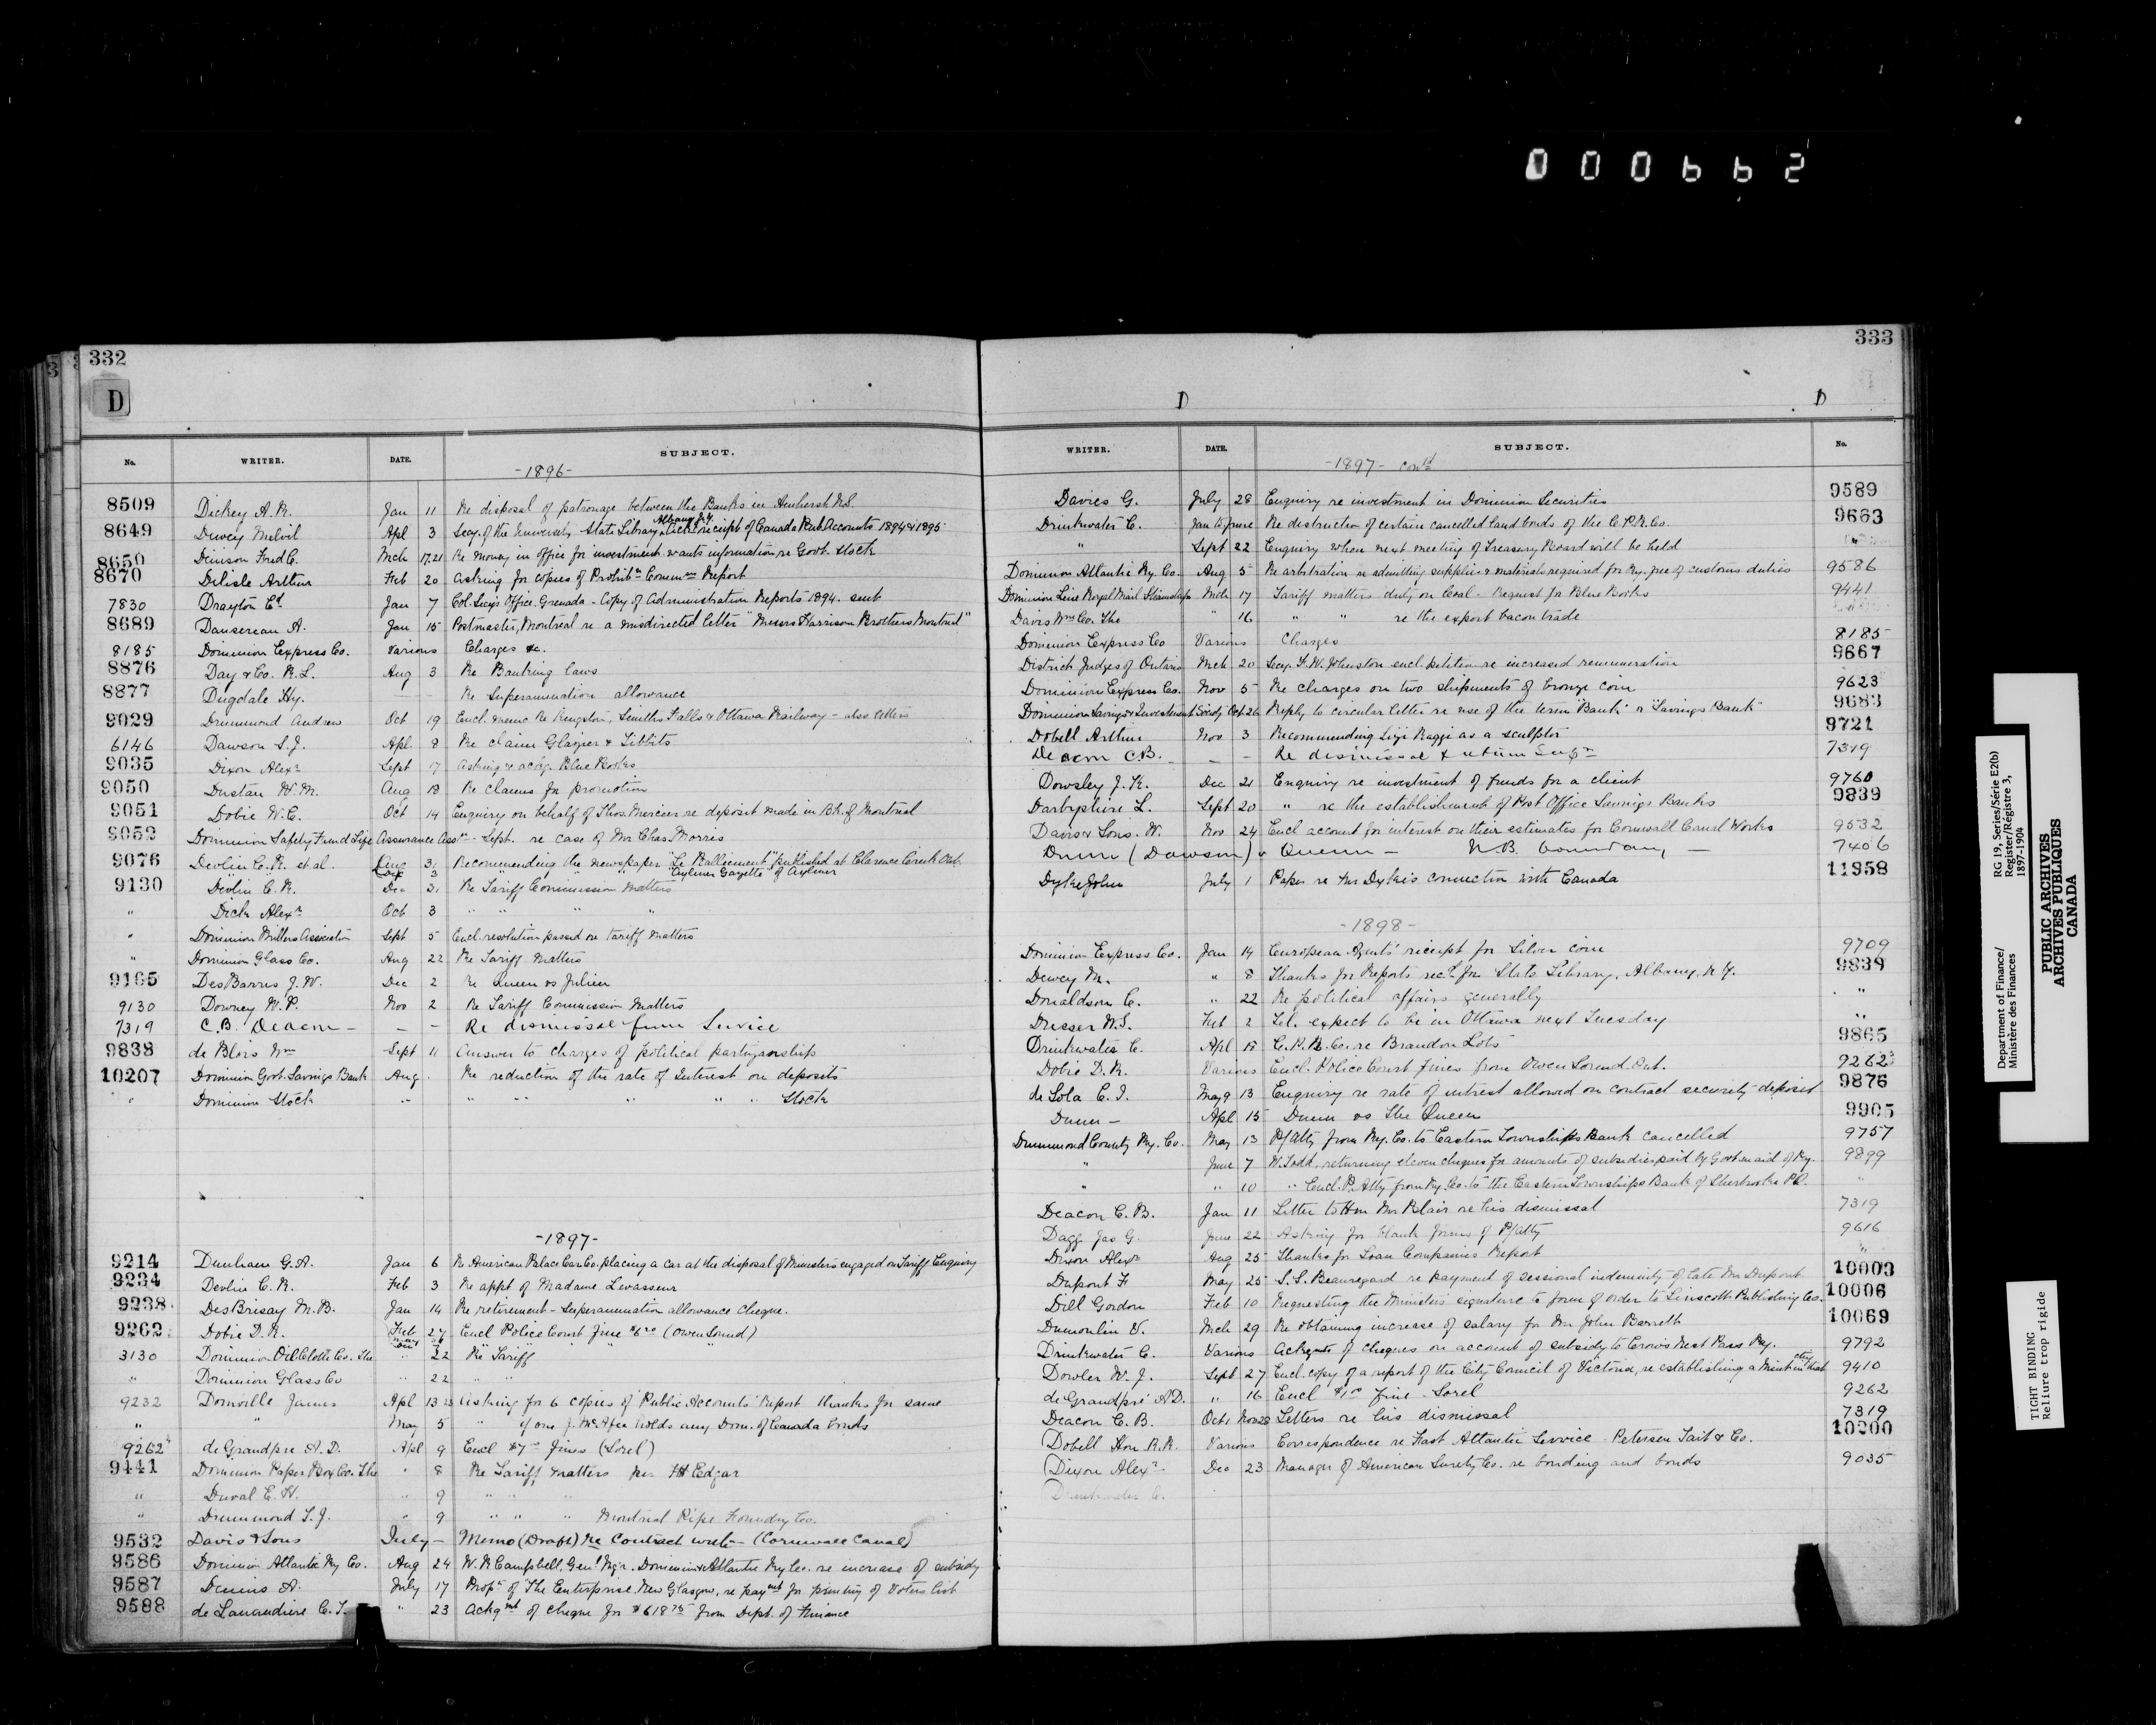 000662
332
D
No. WRITER. DATE. SUBJECT.
-1896-
8509 Dickey A.R. Jan 11 Re disposal of patronage between the Banks in Amherst N.S.
8649 Dewey Melvil Apl 3 Secy. of the University State Library Albany N.Y. Ack. receipt of Canada Pub Accounts 1894 & 1895
8650 Denison Fred C. Mch 17.21 Re money in office for investment wants information re Govt. Stock
8670 Delisle Arthur Feb 20 asking for copies of Prohibn Commn Report
7830 Drayton Ed. Jan 7 Col. Secy's Office, Grenada - Copy of Administration Reports 1894. sent
8689 Dansereau A. Jan 15 Postmaster, Montreal re a misdirected letter "Messrs Harrison Brothers Montreal"
8185 Dominion Express Co. Various Charges &c.
8876 Day & Co. R.L. Aug 3 Re Banking laws
8877 Dugdale Hy. Re Superannuation allowance
9029 Drummond Andrew Oct 19 Encl. memo Re Kingston, Smiths Falls & Ottawa Railway - also letters
6146 Dawson S.J. Apl 8 Re claim Glazier & Tibbits
9035 Dixon Alexr Sept 17 asking & ackg. Blue Books
9050 Dustan W.M. Aug 18 Re claims for promotion
9051 Dobie W.E. Oct 14 Enquiry on behalf of Thos. Mercier re deposit made in Bk. of Montreal
9053 Dominion Safety Fund Life Assurance Assn - Sept. re case of Mr Chas. Morris
9076 Devlin C.R. et al. Aug 31 Recommending the newspaper "Le Ralliement" published at Clarence Creek Ont.
3 " "Aylmer Gazette" of Aylmer
9130 Devlin C.R. Dec 21 Re Tariff Commission matters
" Dick Alexr Oct 3 " " " "
" Dominion Millers Association Sept 5 Encl. resolution passed on tariff matters
" Dominion Glass Co. Aug 22 Re Tariff matters
9165 DesBarres J.W. Dec 2 Re Queen vs Julien
9130 Downey W.P. Nov 2 Re Tariff Commission matters
7319 C.B. Deacon - - - Re dismissal from Service
9838 de Blois Wm Sept 11 Answer to charges of political partizanship
10207 Dominion Govt. Savings Bank Aug. Re reduction of the rate of Interest on deposits
" Dominion Stock " " " " " " " Stock
-1897-
9214 Dunham G.A. Jan 6 Re American Palace Car Co. placing a car at the disposal of Ministers engaged on Tariff Enquiry
9234 Devlin C.R. Feb 3 Re appt. of Madame Levasseur
9238 DesBrisay M.B. Jan 14 Re retirement - Superannuation allowance cheque.
9262 Dobie D.R. Feb 27 Encl Police Court fine $6.00 (Owen Sound)
3130 Dominion Oil Cloth Co. The " 22 Re Tariff
" Dominion Glass Co " 22 " "
9232 Domville James Apl 13 23 asking for 6 copies of "Public Accounts" Report thanks for same
" " May 5 " if one J. McAfee holds any Dom. of Canada bonds
9262 de Grandpre A.D. Apl 9 Encl $7.00 fines (Sorel)
9441 Dominion Paper Box Co. The " 8 Re Tariff matters per Edgar
" Duval E.H. " 9 " " "
" Drummond T.J. " 9 " " " Montreal Pipe Foundry Co.
9532 Davis & Sons July - Memo (Draft) Re Contract with - (Cornwall Canal)
9586 Dominion Atlantic Ry Co. Aug 24 W.R. Campbell, Genl Mgr. Dominion Atlantic Ry Co. re increase of subsidy
9587 Dennis A. July 17 Propr of "The Enterprise" New Glasgow, re paymt for printing of Voters list
9588 de Lanaudiere C.T. " 23 Ackgmt of cheque for $618.75 from Dept. of Finance
333
D D
WRITER. DATE. SUBJECT. No.
-1897- contd
Davies G. July 28 Enquiry re investment in Dominion Securities 9589
Drinkwater C. Jan to June Re destruction of certain cancelled land bonds of the C.P.R. Co. 9663
" Sept 22 Enquiry when next meeting of Treasury Board will be held
Dominion Atlantic Ry. Co. Aug 5 Re arbitration re admitting supplies & materials required for Ry. free of customs duties 9586
Dominion Line Royal Mail Steamships Mch 17 Tariff matters duty on Coal - Request for Blue Books 9441
Davis Wm Co. The " 16 " " re the export bacon trade
Dominion Express Co Various Charges 8185
District Judges of Ontario Mch 20 Secy. F.W. Johnston encl. petition re increased remuneration 9667
Dominion Express Co. Nov 5 Re charges on two shipments of bronze coin 9623
Dominion Savings & Investment Society Oct 26 Reply to circular letter re use of the term "Bank" or "Savings Bank" 9683
Dobell Arthur Nov 3 Recommending Sigr Raggi as a sculptor 9721
Deacon C.B. - - Re dismissal & return Supn 7319
Dowsley J.K. Dec 21 Enquiry re investment of funds for a client 9760
Darbyshire L. Sept 20 " re the establishment of Post Office Savings Banks 9839
Davis & Sons. W. Nov 24 Encl account for interest on their estimates for Cornwall Canal Works 9532
Dunn (Dawson) v Queen - N.B. boundary - 7406
Dyke John July 1 Paper re Mr Dyke's connection with Canada 11358
-1898-
Dominion Express Co. Jan 14 European Agents' receipt for Silver coin 9709
Dewey M. " 8 Thanks for Reports recd. for State Library, Albany, N.Y. 9839
Donaldson C. " 22 Re political affairs generally "
Dresser W.S. Feb 2 Tel. expect to be in Ottawa next Tuesday "
Drinkwater C. Apl 18 C.P.R. Co. re Brandon Lots 9865
Dobie D.R. Various Encl. Police Court fines from Owen Sound. Ont. 9262
de Sola C.I. May 9 13 Enquiry re rate of interest allowed on contract security deposit 9876
Dunn - Apl 15 Dunn vs The Queen 9905
Drummond County Ry. Co. May 13 P/Atty from Ry. Co. to Eastern Townships Bank cancelled 9757
" June 7 W. Todd, returning eleven cheques for amounts of subsidies paid by Govt. in aid of Ry. 9899
" " 10 " Encl. P. Atty from Ry. Co. to the Eastern Townships Bank of Sherbrooke P.Q. "
Deacon C.B. Jan 11 Letter to Hon Mr Blair re his dismissal 7319
Dagg Jas G. June 22 Asking for blank forms of P/atty 9616
Dixon Alexr Aug 25 Thanks for Loan Companies Report "
Dupont F May 25 S.S. Beauregard re payment of sessional indemnity of late Mr Dupont 10003
Dill Gordon Feb 10 Requesting the Minister's signature to form of order to Linscott Publishing Co. 10006
Dumoulin V. Mch 29 Re obtaining increase of salary for Mr John Barrett 10069
Drinkwater C. Various Ackgmts of cheques on account of subsidy to Crows Nest Pass Ry. 9792
Dowler W.J. Sept 27 Encl. copy of a report of the City Council of Victoria, re establishing a Mint in that city 9410
de Grandpré A.D. " 16 Encl $1.00 fine - Sorel 9262
Deacon C.B. Oct 1 Nov 28 Letters re his dismissal 7319
Dobell Hon R.R. Various Correspondence re Fast Atlantic Service - Petersen Tait & Co. 10200
Dixon Alexr Dec 23 Manager of American Surety Co. re bonding and bonds 9035
Drinkwater C.
Department of Finance/ RG 19, Series/Série E2(b)
Ministère des Finances Register/Régistre 3,
1897-1904
PUBLIC ARCHIVES
ARCHIVES PUBLIQUES
CANADA
TIGHT BINDING
Reliure trop rigide